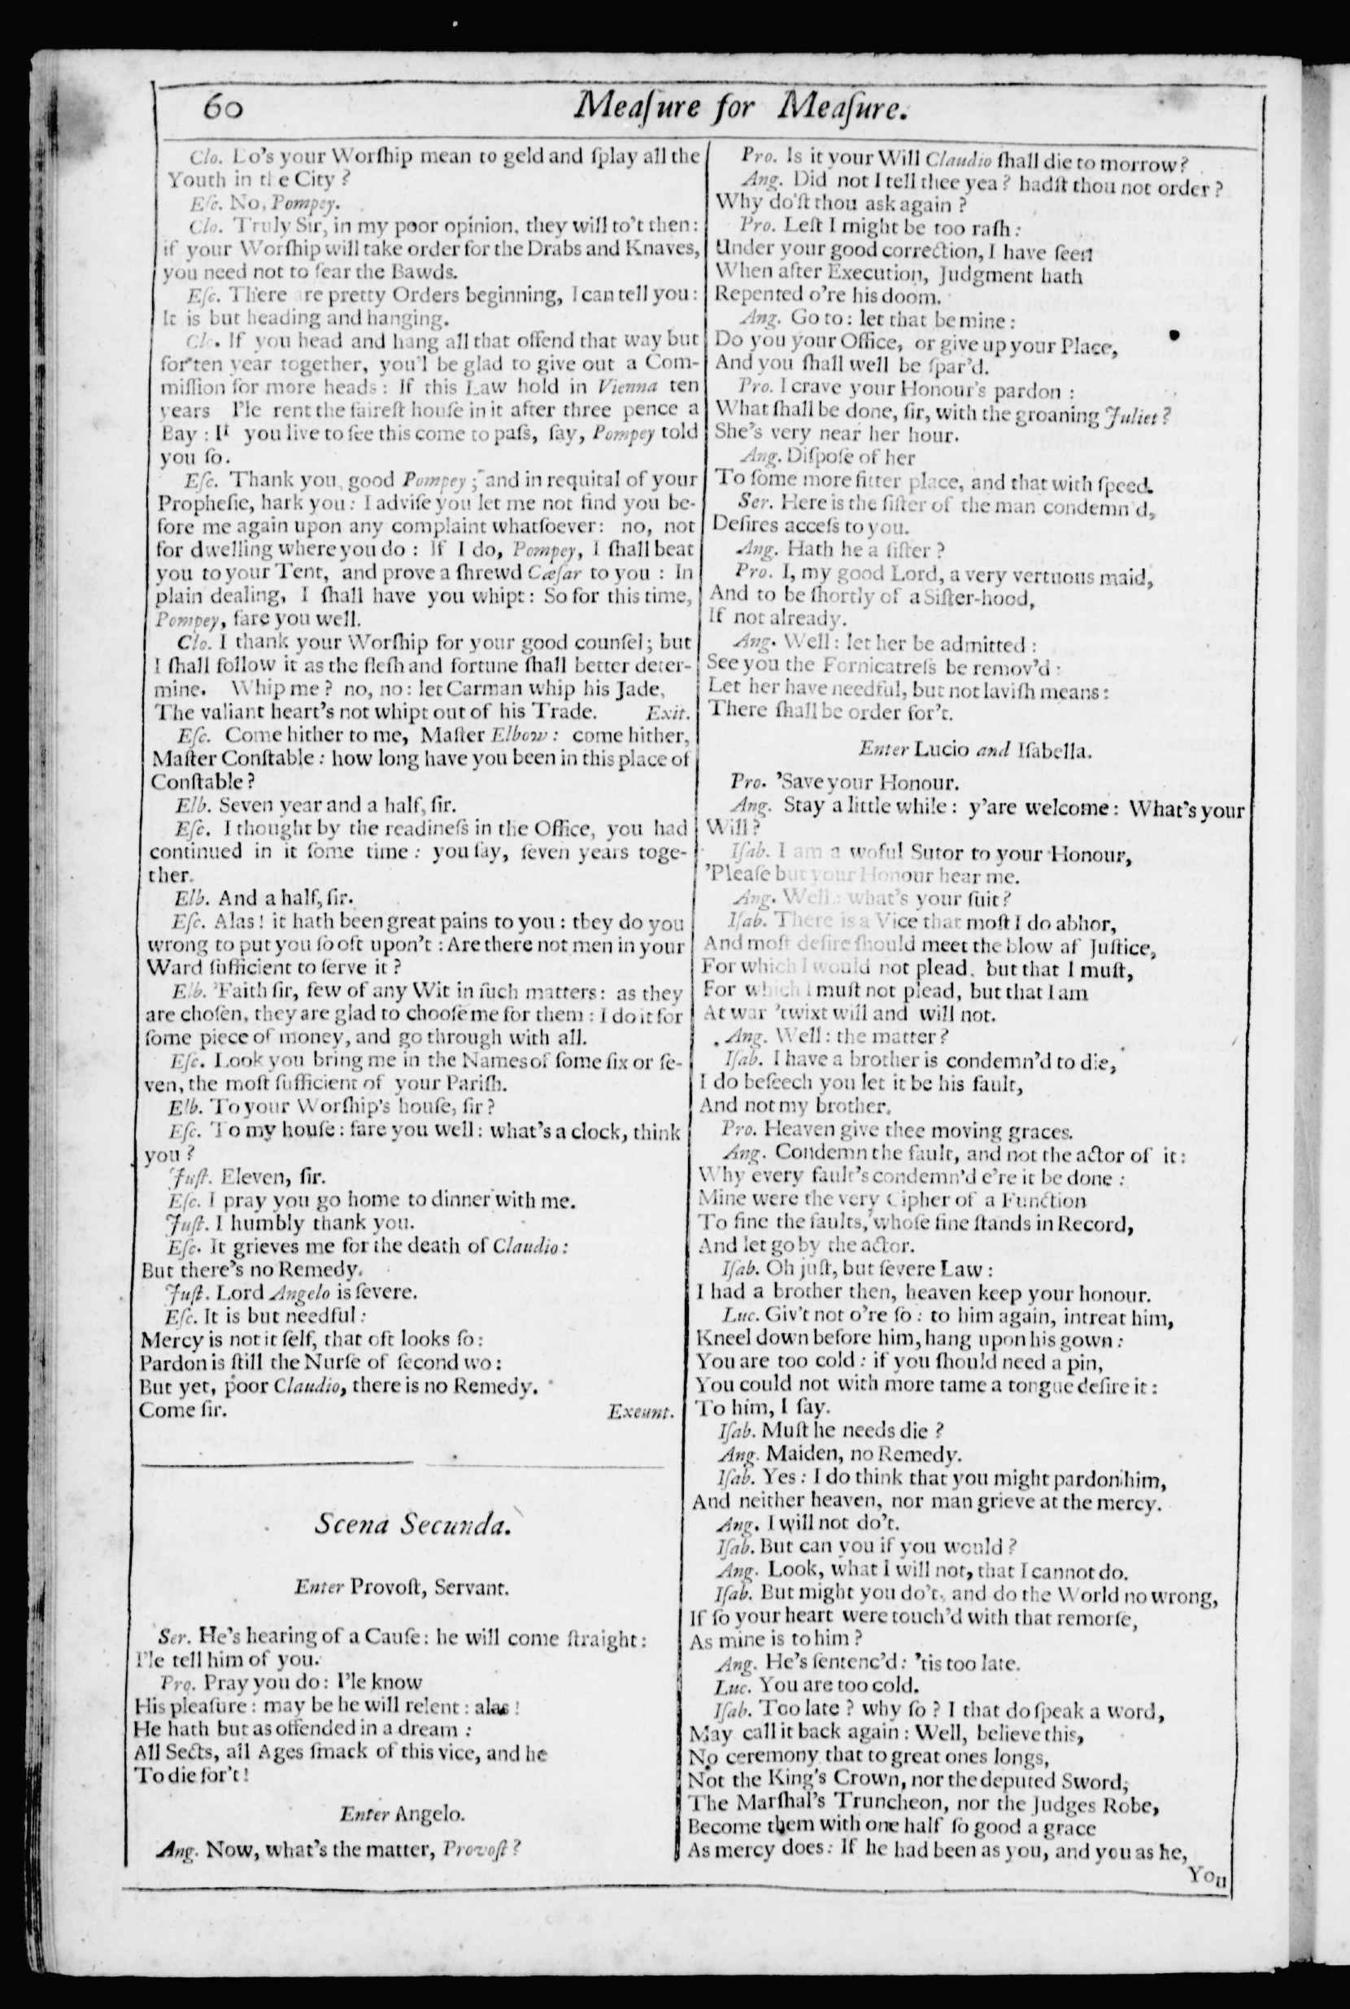 60
Meaſure for Meaſure.
Clo. Do's your Worſhip mean to geld and ſplay all the
Youth in the City?
Eſc. No, Pompey.
Clo. Truly Sir, in my poor opinion, they will to't then:
if your Worſhip will take order for the Drabs and Knaves,
you need not to fear the Bawds.
Eſc. There are pretty Orders beginning, I can tell you:
It is but heading and hanging.
Clo. If you head and hang all that offend that way but
for ten year together, you'l be glad to give out a Com-
miſſion for more heads: If this Law hold in Vienna ten
years I'le rent the faireſt houſe in it after three pence a
Bay: If you live to ſee this come to paſs, ſay, Pompey told
you ſo.
Eſc. Thank you good Pompey; and in requital of your
Propheſie, hark you: I adviſe you let me not find you be-
fore me again upon any complaint whatſoever: no, not
for dwelling where you do: If I do, Pompey, I ſhall beat
you to your Tent, and prove a ſhrewd Cæſar to you: In
plain dealing, I ſhall have you whipt: So for this time,
Pompey, fare you well.
Clo. I thank your Worſhip for your good counſel; but
I ſhall follow it as the fleſh and fortune ſhall better deter-
mine. Whip me? no, no: let Carman whip his Jade,
The valiant heart's not whipt out of his Trade. Exit.
Eſc. Come hither to me, Maſter Elbow: come hither,
Maſter Conſtable: how long have you been in this place of
Conſtable?
Elb. Seven year and a half, ſir.
Eſc. I thought by the readineſs in the Office, you had
continued in it ſome time: you ſay, ſeven years toge-
ther.
Elb. And a half, ſir.
Eſc. Alas! it hath been great pains to you: they do you
wrong to put you ſo oft upon't: Are there not men in your
Ward ſufficient to ſerve it?
Elb. 'Faith ſir, few of any Wit in ſuch matters: as they
are choſen, they are glad to chooſe me for them: I do it for
ſome piece of money, and go through with all.
Eſc. Look you bring me in the Names of ſome ſix or ſe-
ven, the moſt ſufficient of your Pariſh.
Elb. To your Worſhip's houſe, ſir?
Eſc. To my houſe: fare you well: what's a clock, think
you?
Juſt. Eleven, ſir.
Eſc. I pray you go home to dinner with me.
Juſt. I humbly thank you.
Eſc. It grieves me for the death of Claudio:
But there's no Remedy.
Juſt. Lord Angelo is ſevere.
Eſc. It is but needful:
Mercy is not it ſelf, that oft looks ſo:
Pardon is ſtill the Nurſe of ſecond wo:
But yet, poor Claudio, there is no Remedy.
Come ſir. Exeunt.
Scena Secunda.
Enter Provoſt, Servant.
Ser. He's hearing of a Cauſe: he will come ſtraight:
I'le tell him of you.
Pro. Pray you do: I'le know
His pleaſure: may be he will relent: alas!
He hath but as offended in a dream:
All Sects, all Ages ſmack of this vice, and he
To die for't!
Enter Angelo.
Ang. Now, what's the matter, Provoſt?
Pro. Is it your Will Claudio ſhall die to morrow?
Ang. Did not I tell thee yea? hadſt thou not order?
Why do'ſt thou ask again?
Pro. Leſt I might be too raſh:
Under your good correction, I have ſeen
When after Execution, Judgment hath
Repented o're his doom.
Ang. Go to: let that be mine:
Do you your Office, or give up your Place,
And you ſhall well be ſpar'd.
Pro. I crave your Honour's pardon:
What ſhall be done, ſir, with the groaning Juliet?
She's very near her hour.
Ang. Diſpoſe of her
To ſome more fitter place, and that with ſpeed.
Ser. Here is the ſiſter of the man condemn'd,
Deſires acceſs to you.
Ang. Hath he a ſiſter?
Pro. I, my good Lord, a very vertuous maid,
And to be ſhortly of a Siſter-hood,
If not already.
Ang. Well: let her be admitted:
See you the Fornicatreſs be remov'd:
Let her have needful, but not laviſh means:
There ſhall be order for't.
Enter Lucio and Iſabella.
Pro. 'Save your Honour.
Ang. Stay a little while: y'are welcome: What's your
Will?
Iſab. I am a woful Sutor to your Honour,
'Pleaſe but your Honour hear me.
Ang. Well: what's your ſuit?
Iſab. There is a Vice that moſt I do abhor,
And moſt deſire ſhould meet the blow af Juſtice,
For which I would not plead, but that I muſt,
For which I muſt not plead, but that I am
At war 'twixt will and will not.
Ang. Well: the matter?
Iſab. I have a brother is condemn'd to die,
I do beſeech you let it be his fault,
And not my brother.
Pro. Heaven give thee moving graces.
Ang. Condemn the fault, and not the actor of it:
Why every fault's condemn'd e're it be done:
Mine were the very Cipher of a Function
To fine the faults, whoſe fine ſtands in Record,
And let go by the actor.
Iſab. Oh juſt, but ſevere Law:
I had a brother then, heaven keep your honour.
Luc. Giv't not o're ſo: to him again, intreat him,
Kneel down before him, hang upon his gown:
You are too cold: if you ſhould need a pin,
You could not with more tame a tongue deſire it:
To him, I ſay.
Iſab. Muſt he needs die?
Ang. Maiden, no Remedy.
Iſab. Yes: I do think that you might pardon him,
And neither heaven, nor man grieve at the mercy.
Ang. I will not do't.
Iſab. But can you if you would?
Ang. Look, what I will not, that I cannot do.
Iſab. But might you do't, and do the World no wrong,
If ſo your heart were touch'd with that remorſe,
As mine is to him?
Ang. He's ſentenc'd: 'tis too late.
Luc. You are too cold.
Iſab. Too late? why ſo? I that do ſpeak a word,
May call it back again: Well, believe this,
No ceremony that to great ones longs,
Not the King's Crown, nor the deputed Sword,
The Marſhal's Truncheon, nor the Judges Robe,
Become them with one half ſo good a grace
As mercy does: If he had been as you, and you as he,
You